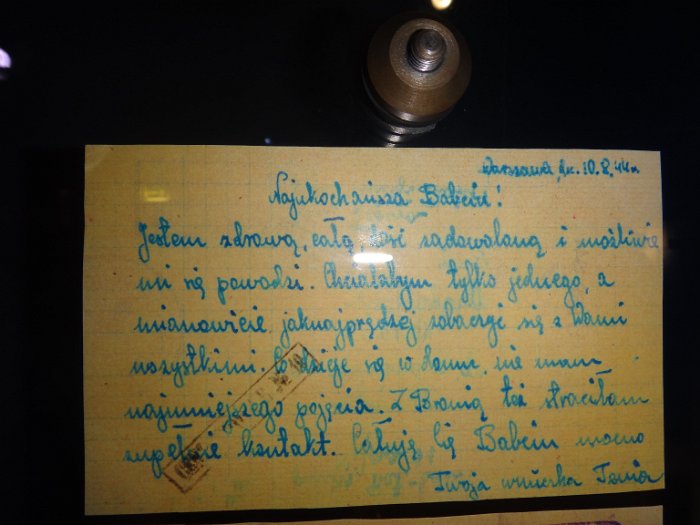 Warszawa, dn. 10.8.44 r.
Najukochańsza Babciu!
Jestem zdrową, całą, dość zadowoloną i możliwie
mi się powodzi. Chciałabym tylko jednego, a
mianowicie jaknajprędzej zobaczyć się z Wami
wszystkimi. Co dzieje się w domu, nie mam
najmniejszego pojęcia. Z Bronią też straciłam
zupełnie kontakt. Całuję Cię Babciu mocno
Twoja wnuczka